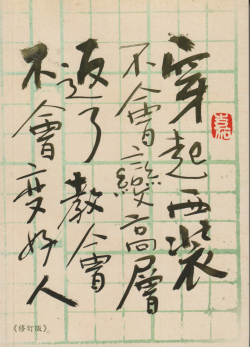 穿起西裝
不會變高層
返了教會
不會变好人
《修訂版》